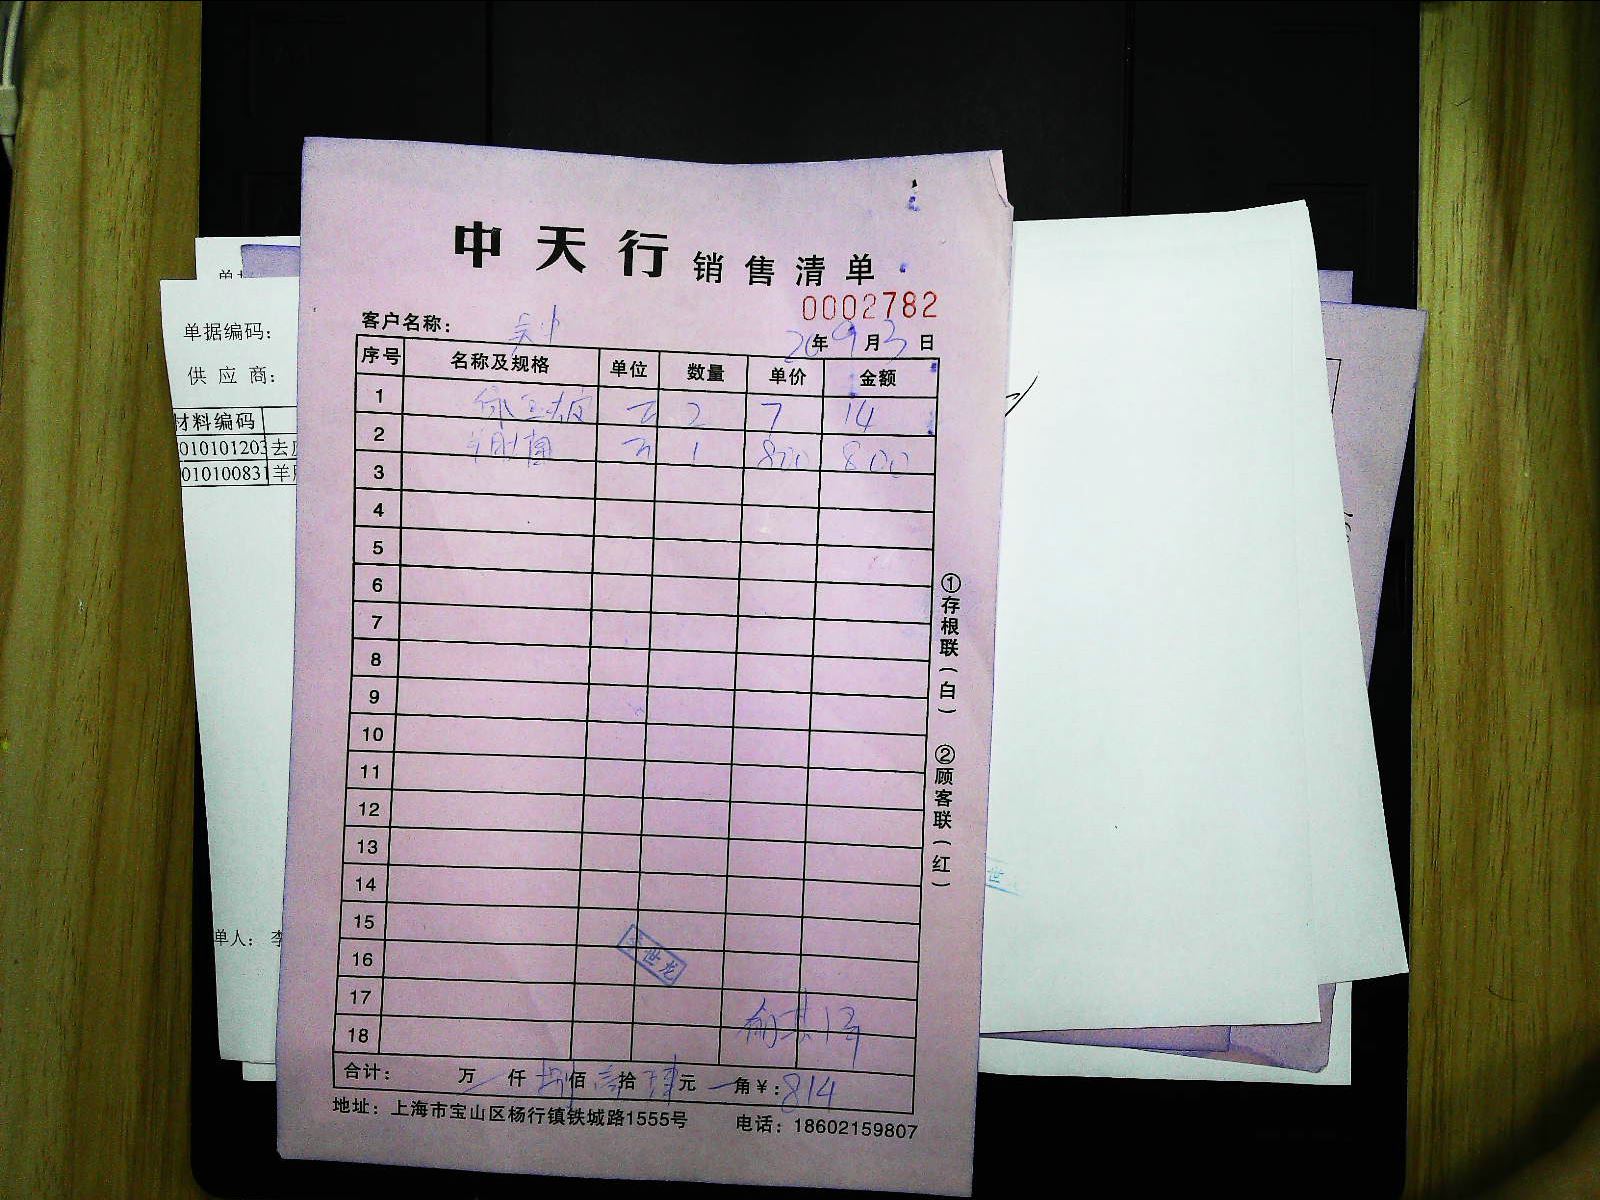 中天行 销售清单
0002782
客户名称：
20年9月3日
序号 名称及规格 单位 数量 单价 金额
1 2 7 14
2 1 800 800
3
4
5
6
7
8
9
10
11
12
13
14
15
16
17
18
世龙
合计： 万 仟 捌佰 壹拾 肆元 角￥：814
地址：上海市宝山区杨行镇铁城路1555号 电话：18602159807
①存根联（白） ②顾客联（红）
单据编码：
供应商：
材料编码
010101203 去
010100831 羊
单人： 李
世